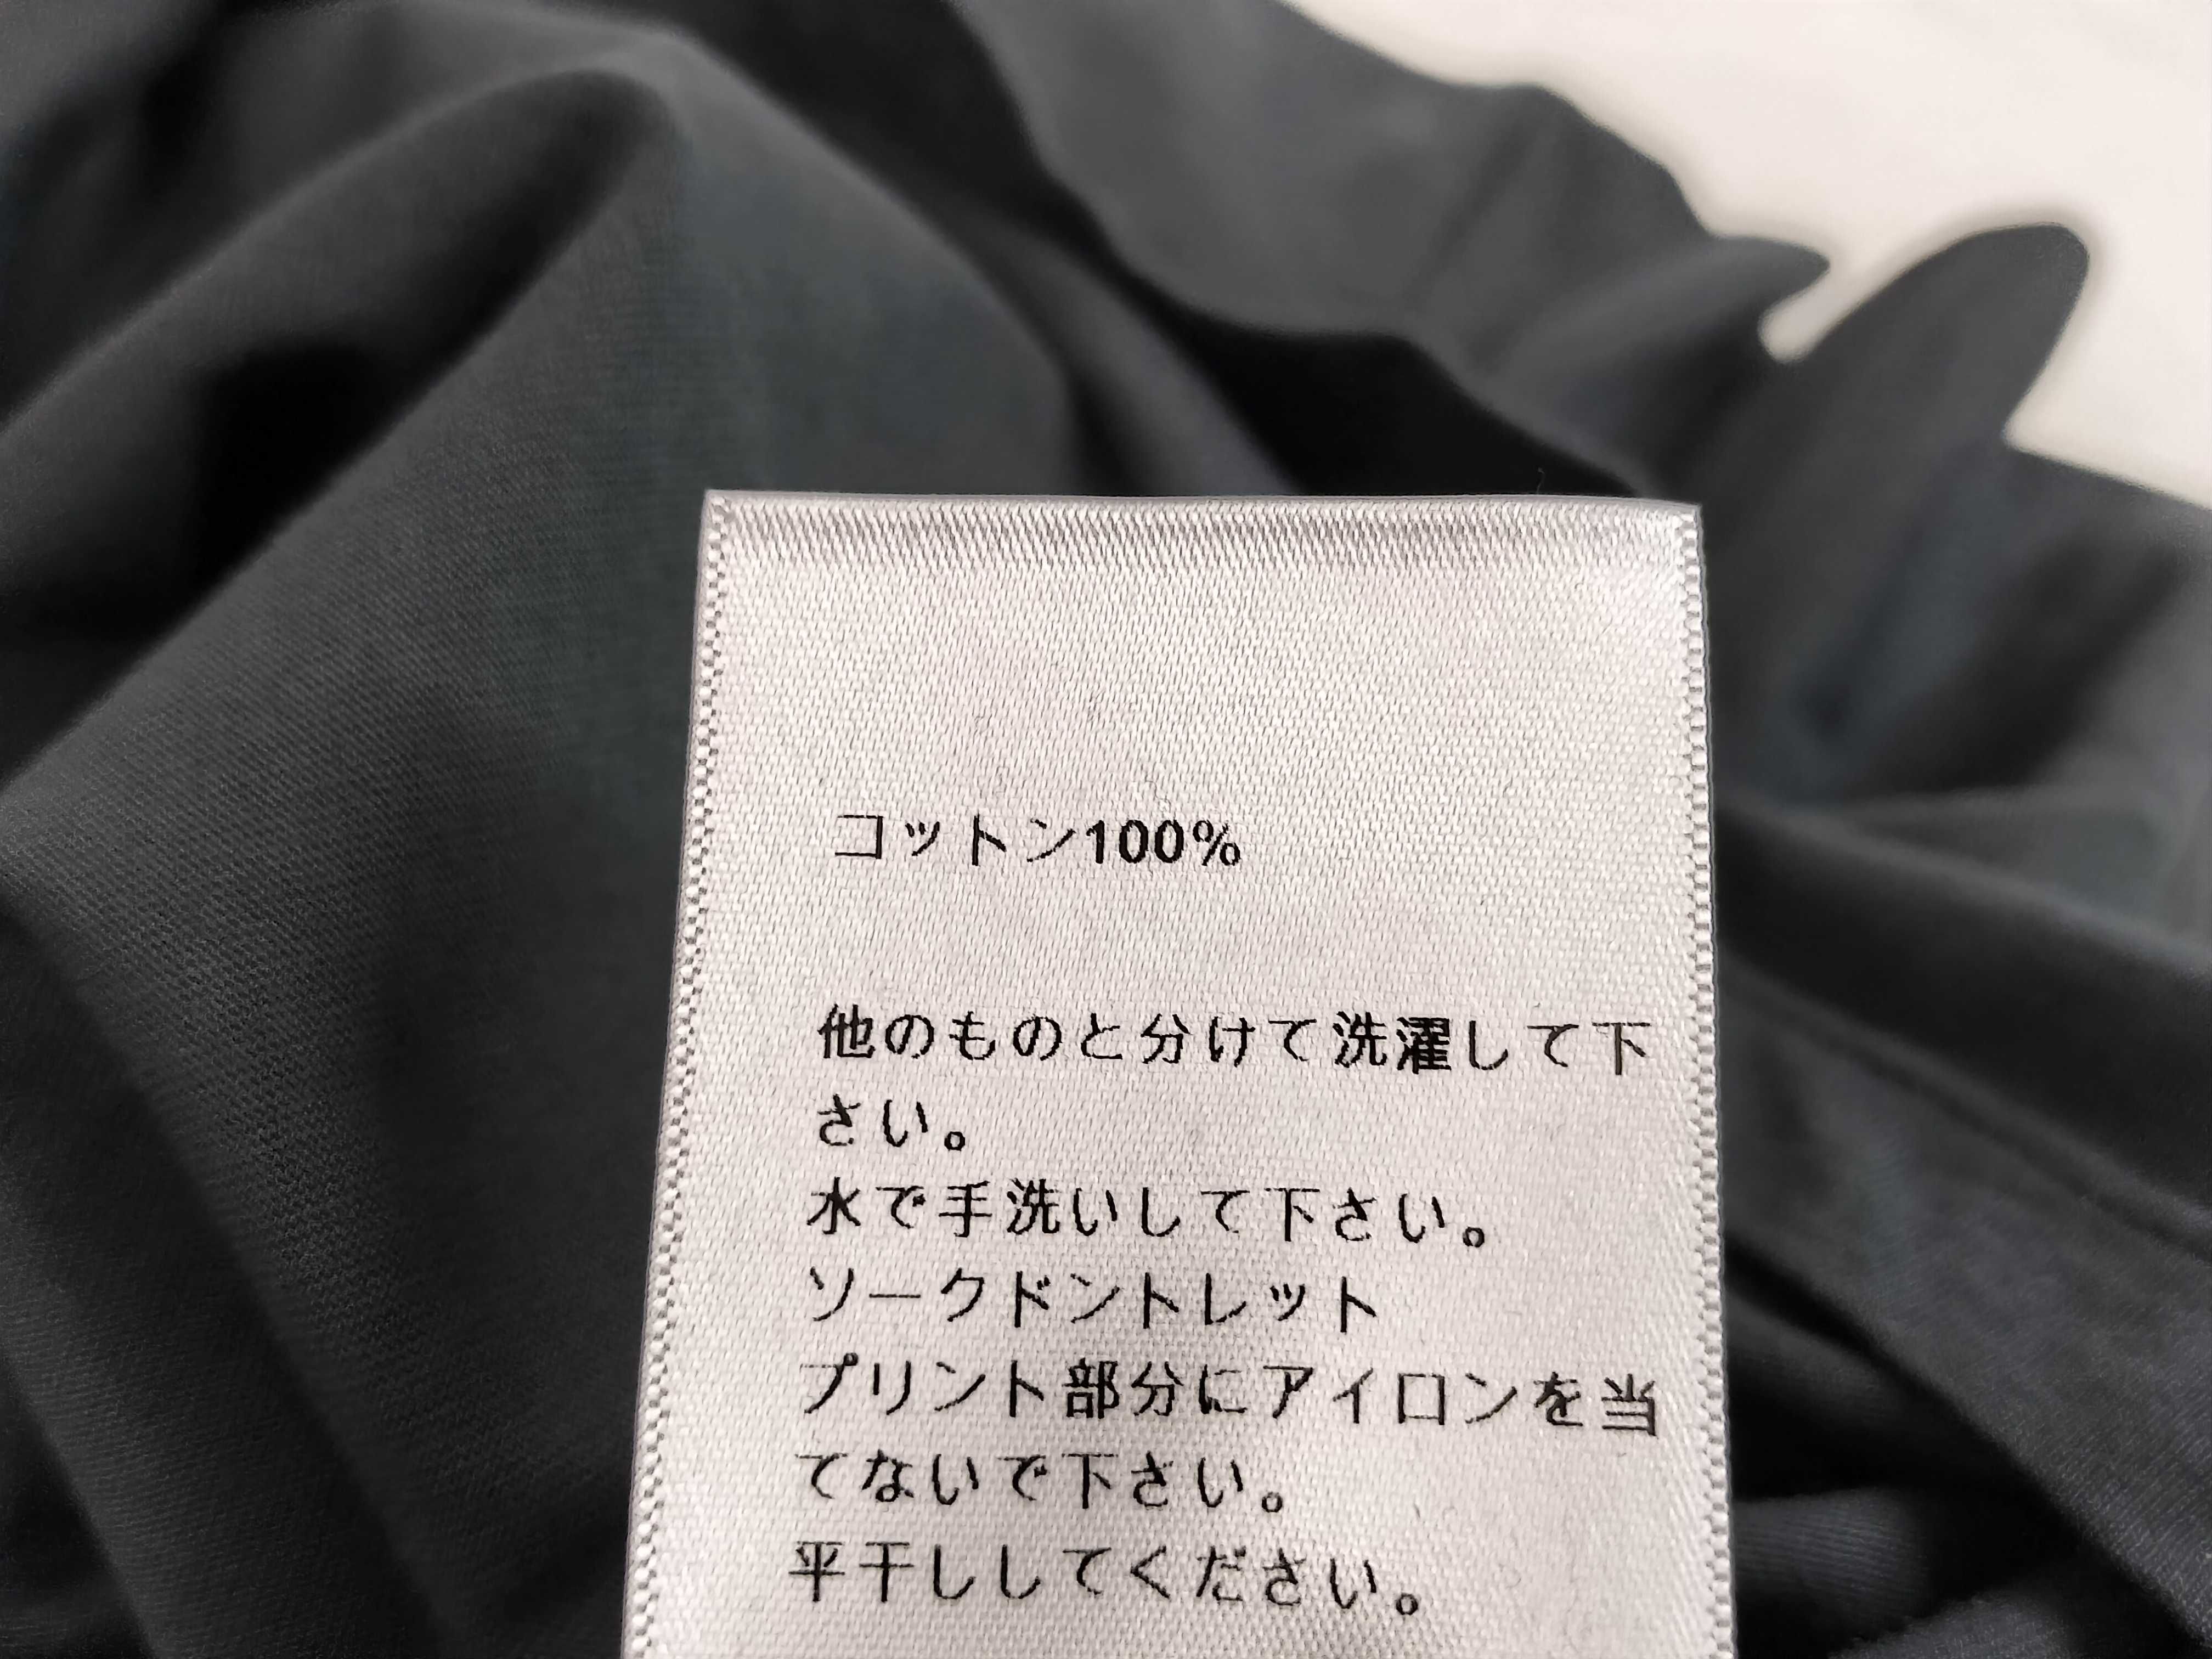 コットン100%
他のものと分けて洗濯して下
さい。
水で手洗いして下さい。
ソークドントレット
プリント部分にアイロンを当
てないで下さい。
平干ししてください。